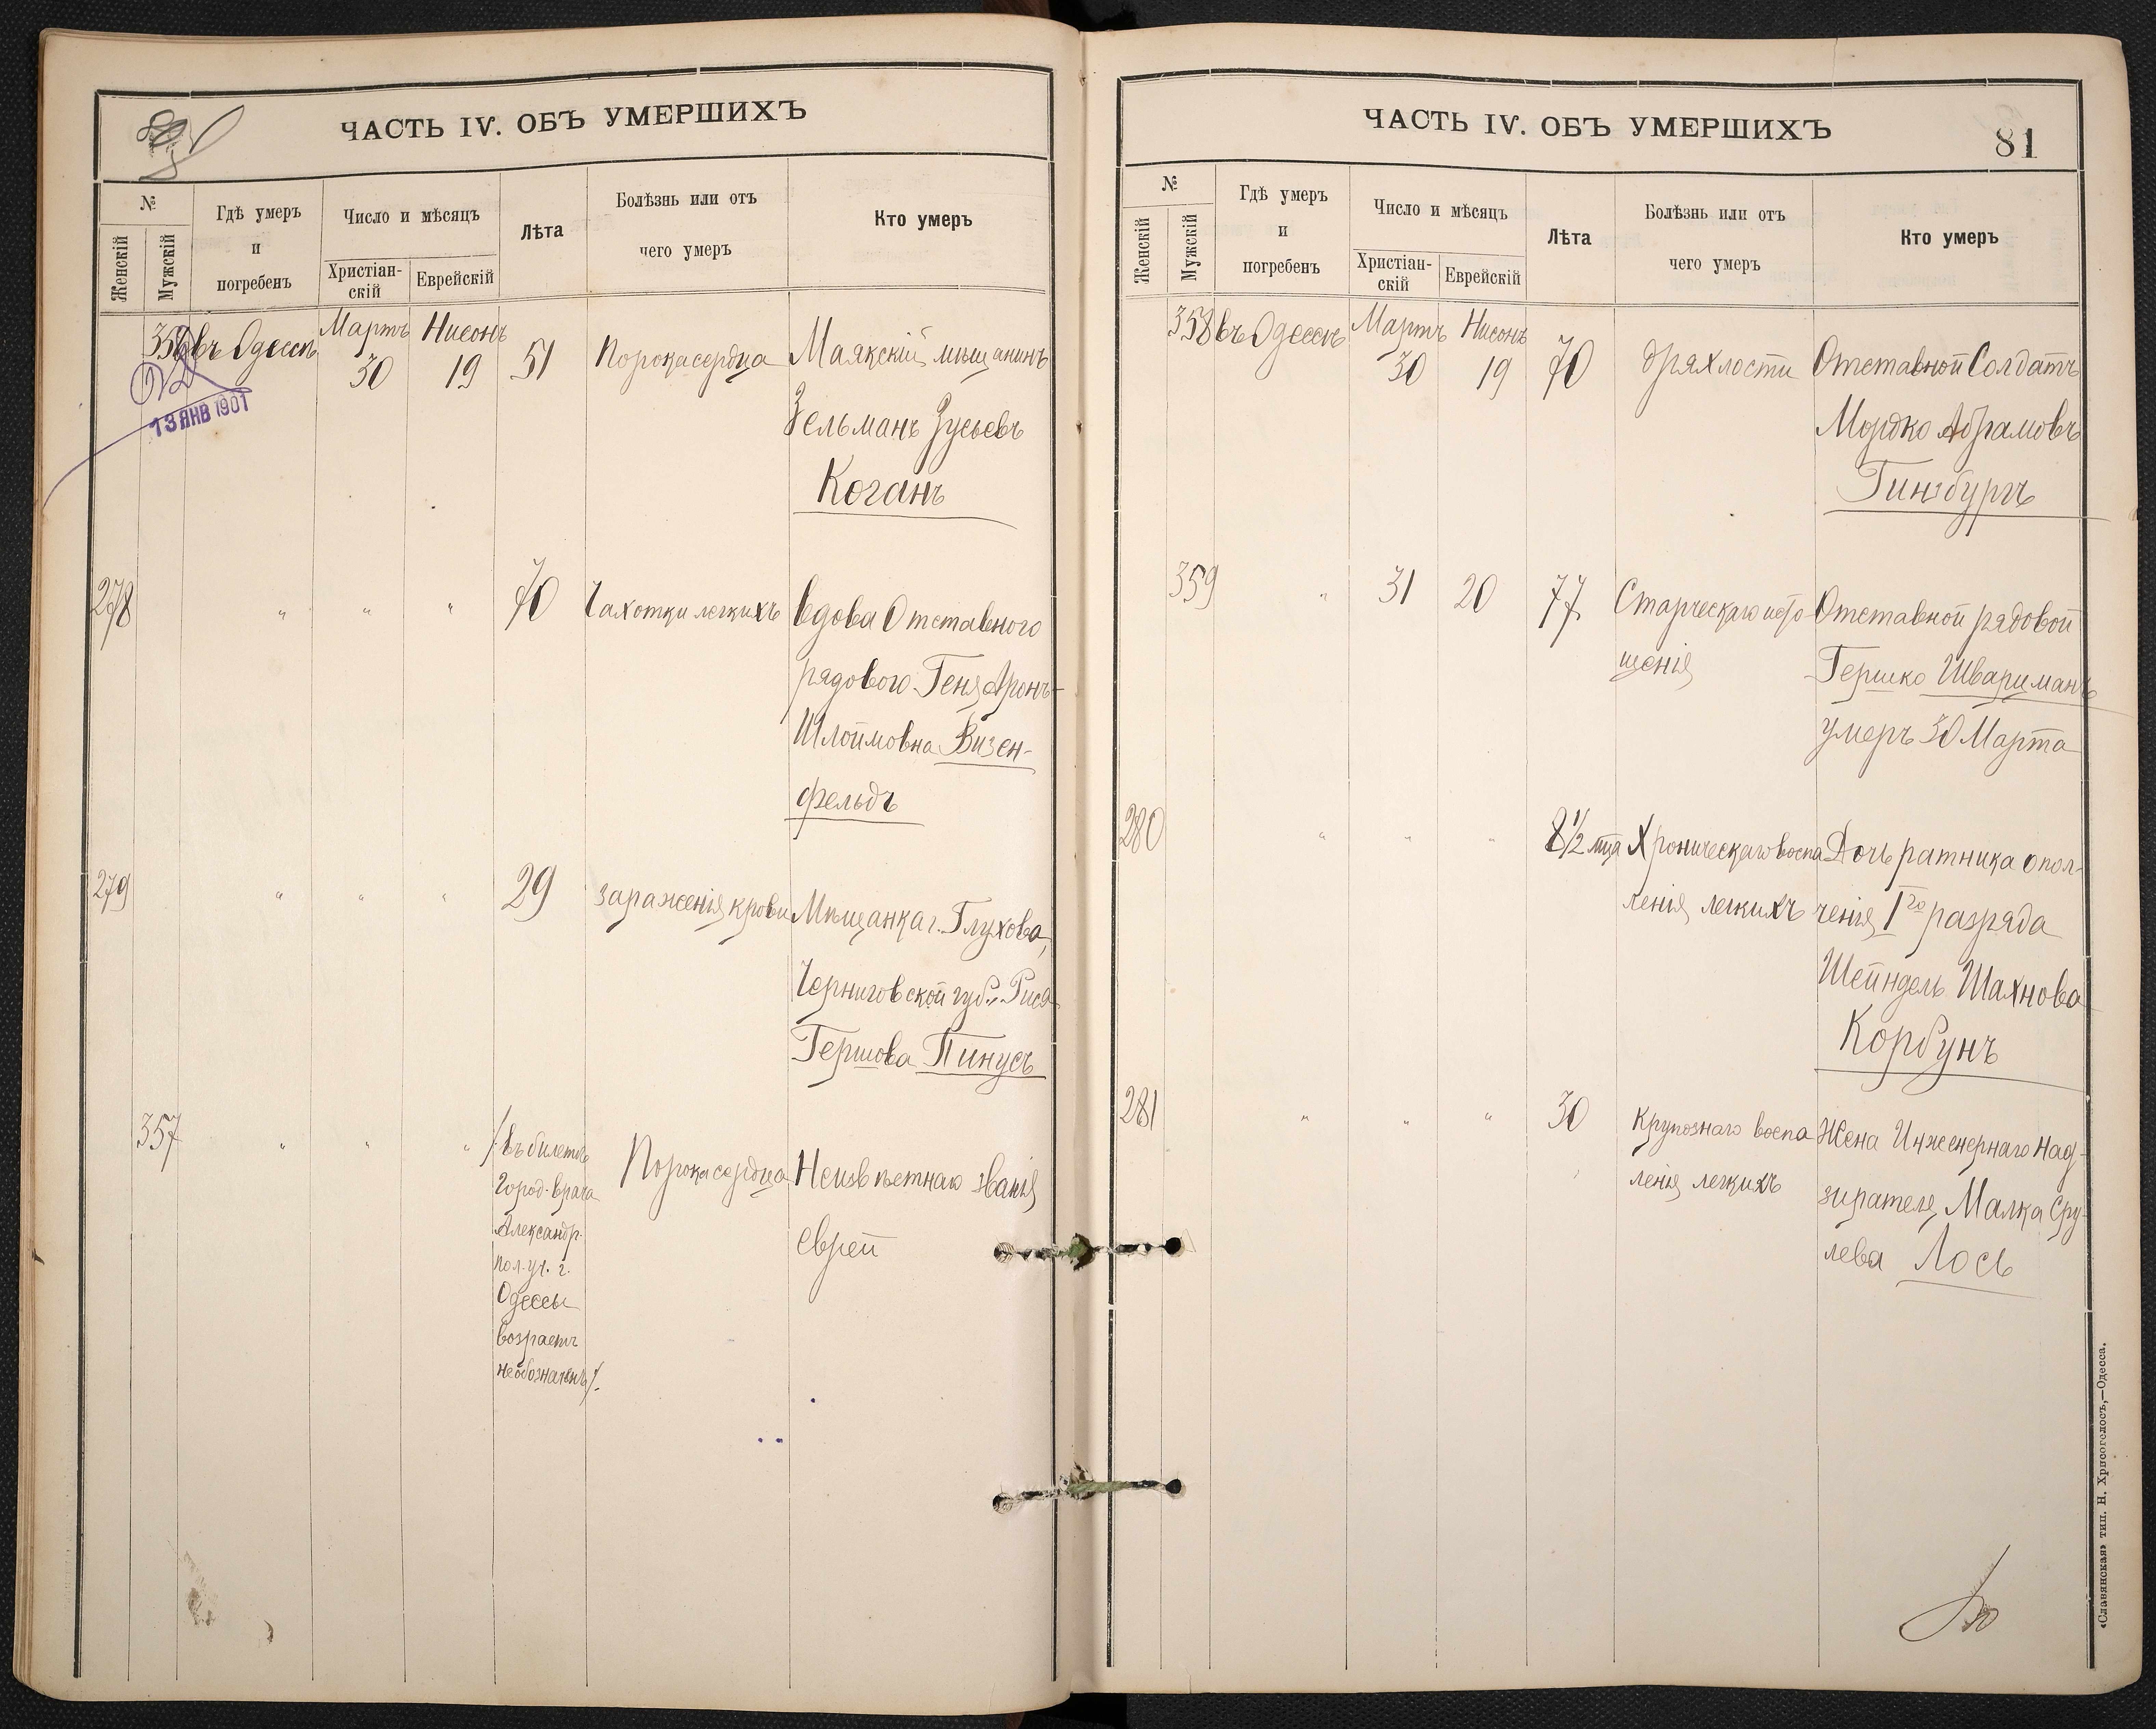 ЧАСТЬ IV. ОБЪ УМЕРШИХЪ
№
Женскій
Мужскій
Гдѣ умеръ
и
погребенъ
Число и мѣсяцъ
Христіан-
скій
Еврейскій
Лѣта
Болѣзнь или отъ
чего умеръ
Кто умеръ
356 въ Одессѣ Мартъ 30 Нисонъ 19 51 Порока сердца Маякскій мѣщанинъ
Зельманъ Зусьевъ
Коганъ
13 ЯНВ 1901
278 " " " 70 Чахотки легкихъ Вдова Отставного
рядового Геня Аронъ-
Шлоймовна Визен-
фельдъ
279 " " " 29 зараженія крови Мѣщанка г. Глухова,
Черниговской губ. Рися
Гершова Пинусъ
357 " " " /въ билетѣ
город. врача
Александр.
пол. уч. г.
Одессы
возрастъ
необозначенъ/.
Порока сердца Неизвѣстнаго званія
еврей
ЧАСТЬ IV. ОБЪ УМЕРШИХЪ
81
№
Женскій
Мужскій
Гдѣ умеръ
и
погребенъ
Число и мѣсяцъ
Христіан-
скій
Еврейскій
Лѣта
Болѣзнь или отъ
чего умеръ
Кто умеръ
358 въ Одессѣ Мартъ 30 Нисонъ 19 70 дряхлости Отставной Солдатъ
Мордко Абрамовъ
Гинзбургъ
359 " 31 20 77 Старческаго исто-
щенія
Отставной рядовой
Гершко Шварцманъ
умеръ 30 Марта
280 " " " 8 1/2 мца Хроническаго воспа
ленія легкихъ
Дочь ратника опол-
ченія Iго разряда
Шейндель Шахнова
Корбунъ
281 " " " 30 Крупознаго воспа
ленія легкихъ
Жена Инженернаго Над-
зирателя Малка Сру-
лева Лось
«Славянская» тип. Н. Хрисогелосъ,—Одесса.